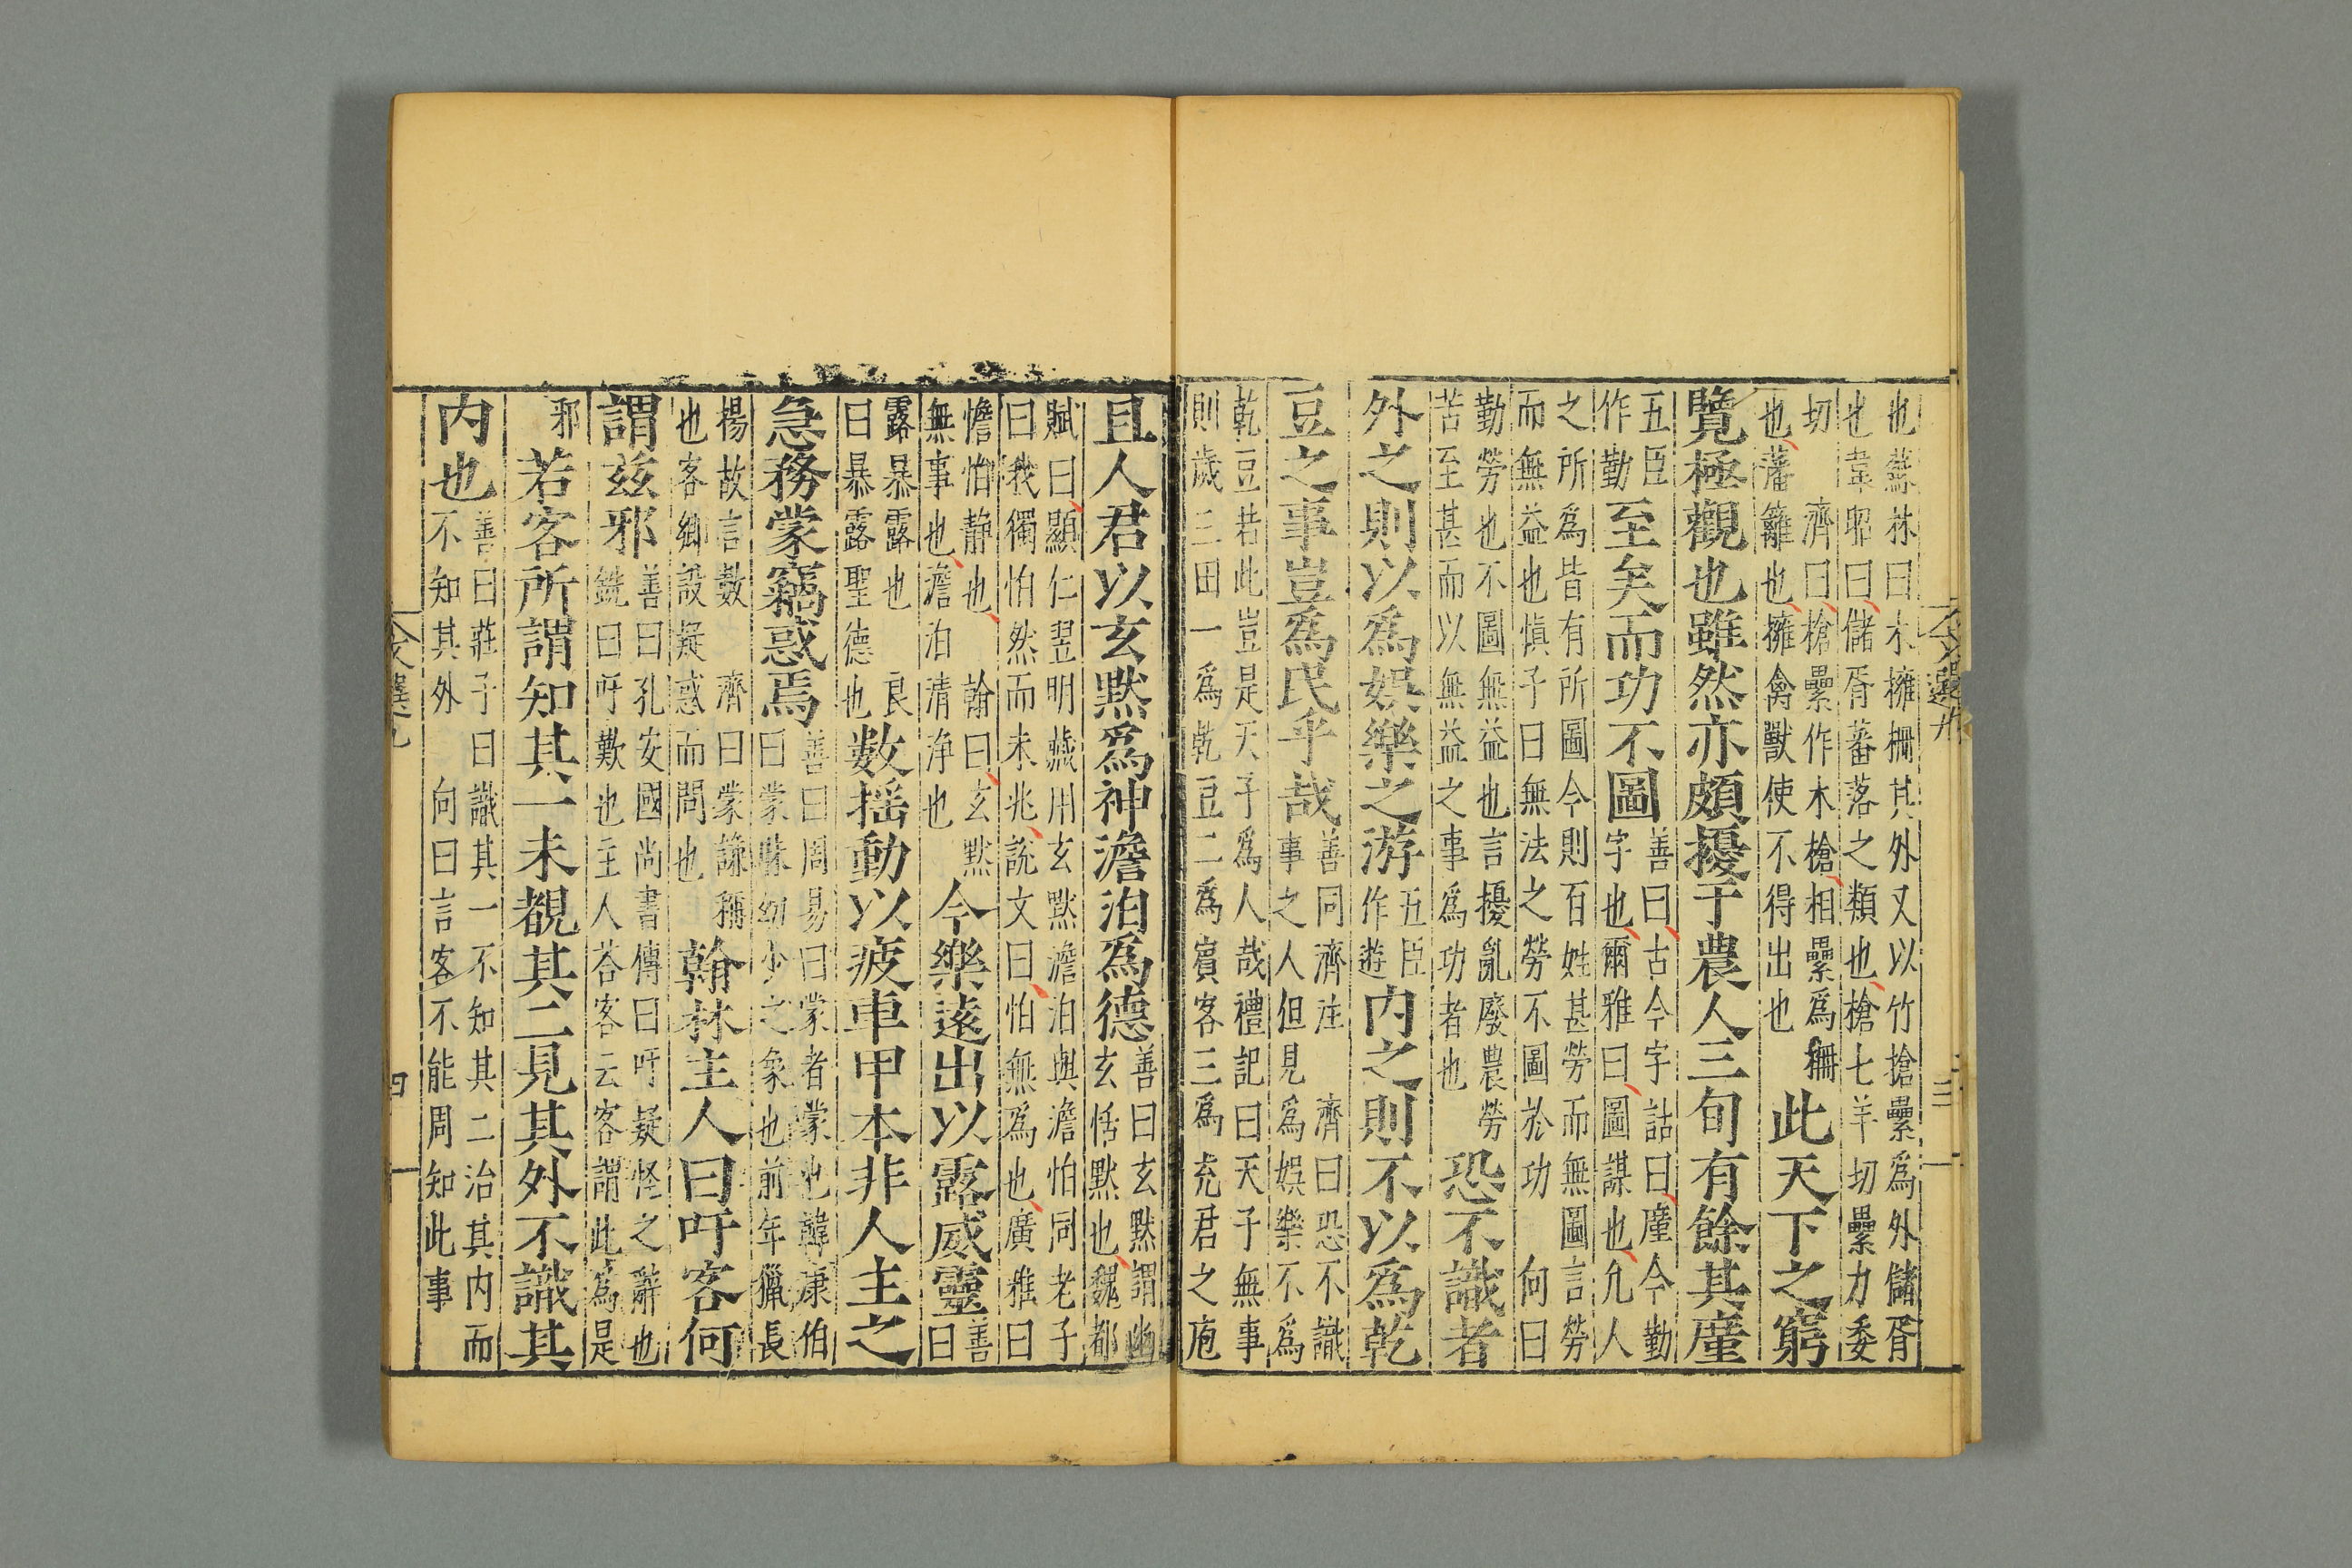 也蘇林曰木擁柵其外又以竹搶纍爲外儲胥
也韋昭曰儲胥蕃落之類也槍七羊切纍力委
切 濟曰槍纍作木槍相纍爲柵
也藩籬也擁禽獸使不得出也
此天下之窮
覽極觀也雖然亦頗擾于農人三旬有餘其廑
五臣
作勤
至矣而功不圖
善曰古今字詁曰廑今勤
字也爾雅曰圖謀也凡人
之所爲皆有所圖今則百姓甚勞而無圖言勞
而無益也愼子曰無法之勞不圖於功 向曰
勤勞也不圖無益也言擾亂廢農勞
苦至甚而以無益之事爲功者也
恐不識者
外之則以爲娛樂之游
五臣
作遊
内之則不以爲乾
豆之事豈爲民乎哉
善同濟注 濟曰恐不識
事之人但見爲娛樂不爲
乾豆若此豈是天子爲人哉禮記曰天子無事
則歲三田一爲乾豆二爲賓客三爲充君之庖
文選九
三
且人君以玄默爲神澹泊爲德
善曰玄默謂幽
玄恬默也魏都
賦曰顯仁翌明藏用玄默澹泊與澹怕同老子
曰我獨怕然而未兆說文曰怕無爲也廣雅曰
憺怕靜也 翰曰玄默
無事也澹泊清淨也
今樂遠出以露威靈
善
曰
露暴露也 良
曰暴露聖德也
数揺動以疲車甲本非人主之
急務蒙竊惑焉
善曰周易曰蒙者蒙也韓康伯
曰蒙昧幼少之象也前年獵長
楊故言數 濟曰蒙謙稱
也客卿設疑惑而問也
翰林主人曰吁客何
謂兹邪
善曰孔安國尚書傳曰吁疑怪之辭也
銑曰吁歎也主人荅客云客謂此爲是
邪
若客所謂知其一未覩其二見其外不識其
内也
善曰莊子曰識其一不知其二治其内而
不知其外 向曰言客不能周知此事
文選九
四